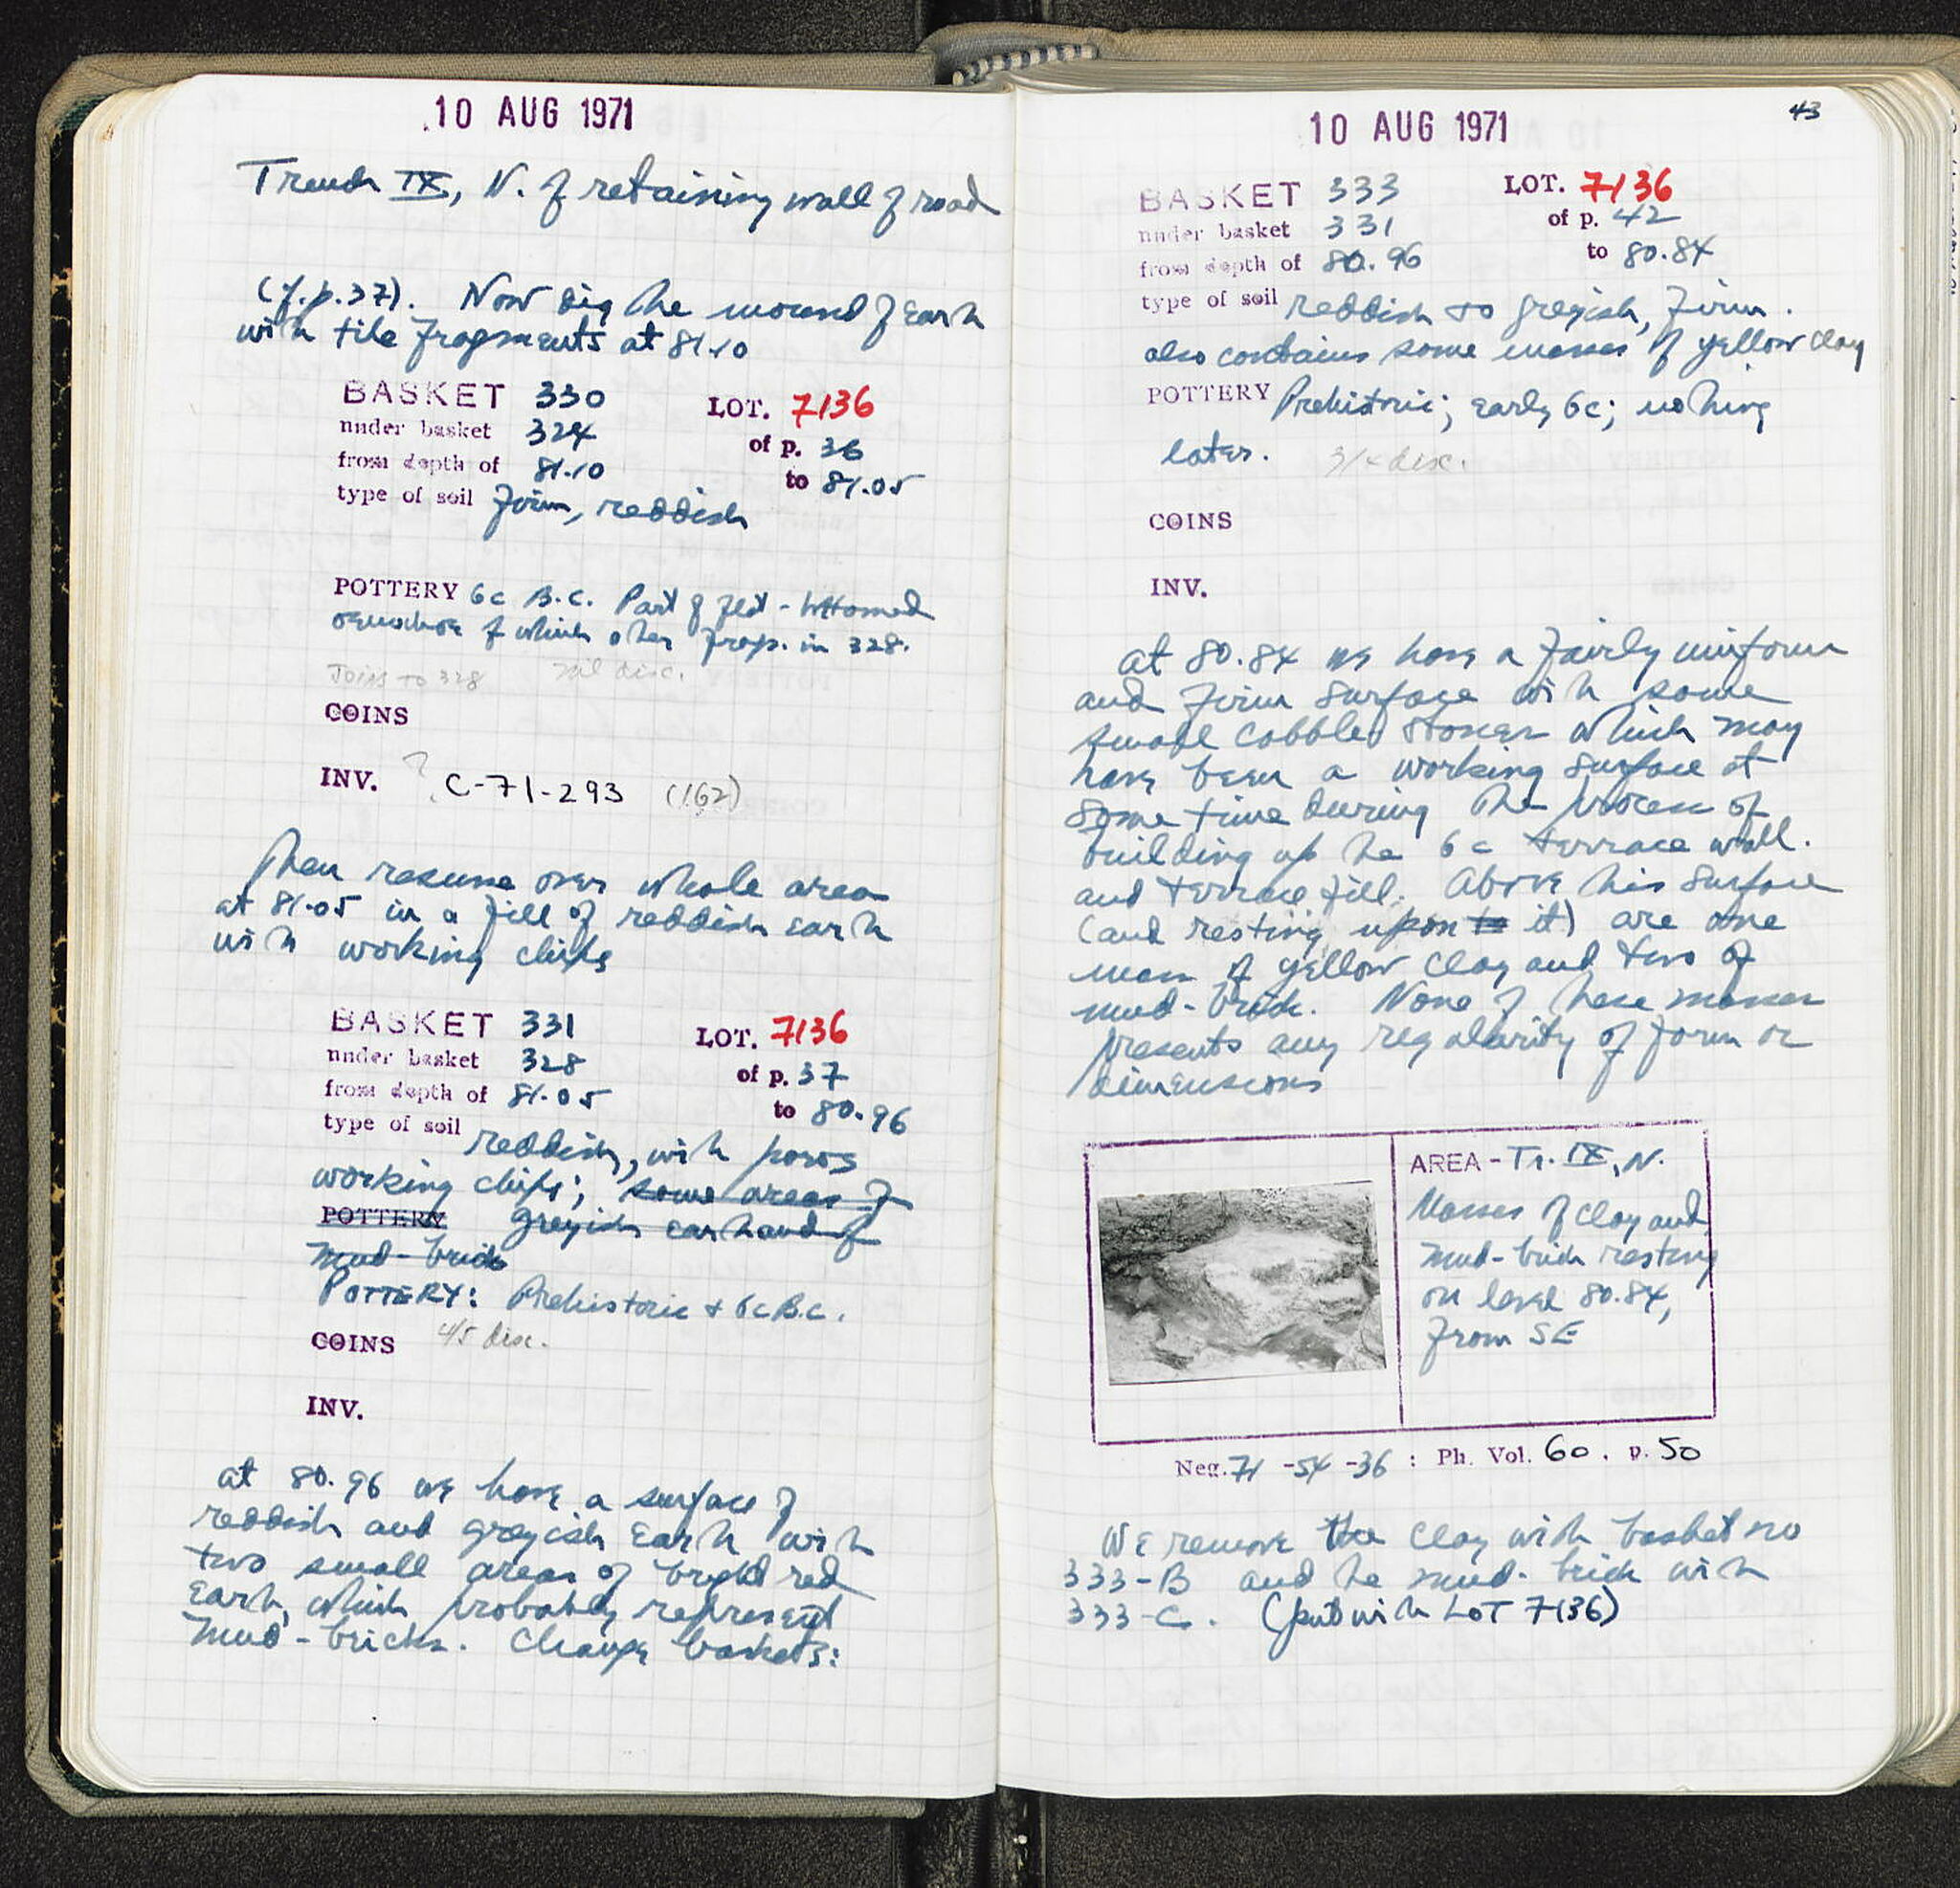 10 AUG 1971
Trench IX, N. of retaining wall of road
(cf. p. 37). Now dig the mound of earth
with tile fragments at 81.10
BASKET 330 LOT. 7136
under basket 324 of p. 36
from depth of 81.10 to 81.05
type of soil firm, reddish
POTTERY 6c B.C. Part of flat-bottomed
oenochoe of which other frags. in 328.
Joins to 328 nil disc.
COINS
INV. ? C-71-293 (162)
Then resume over whole area
at 81.05 in a fill of reddish earth
with working chips
BASKET 331 LOT. 7136
under basket 328 of p. 37
from depth of 81.05 to 80.96
type of soil reddish, with poros
working chips; some areas of
POTTERY greyish earth and of
mud-brick
POTTERY: Prehistoric + 6c B.C.
COINS 4/5 disc.
INV.
at 80.96 we have a surface of
reddish and greyish earth with
two small areas of bright red
earth, which probably represent
mud-bricks. Change baskets:
43
10 AUG 1971
BASKET 333 LOT. 7136
under basket 331 of p. 42
from depth of 80.96 to 80.84
type of soil reddish to greyish, firm.
also contains some masses of yellow clay
POTTERY Prehistoric; early 6c; nothing
later. 3/4 disc.
COINS
INV.
at 80.84 we have a fairly uniform
and firm surface with some
small cobble stones which may
have been a working surface at
some time during the process of
building up the 6c terrace wall.
and terrace fill. Above this surface
(and resting upon to it) are one
mass of yellow clay and two of
mud-brick. None of these masses
presents any regularity of form or
dimensions
AREA - Tr. IX, N.
Masses of clay and
mud-brick resting
on level 80.84,
from SE
Neg. 71 -54 -36 : Ph. Vol. 60 . p. 50
We remove the clay with basket no
333-B and the mud-brick with
333-C. (put with LOT 7136)